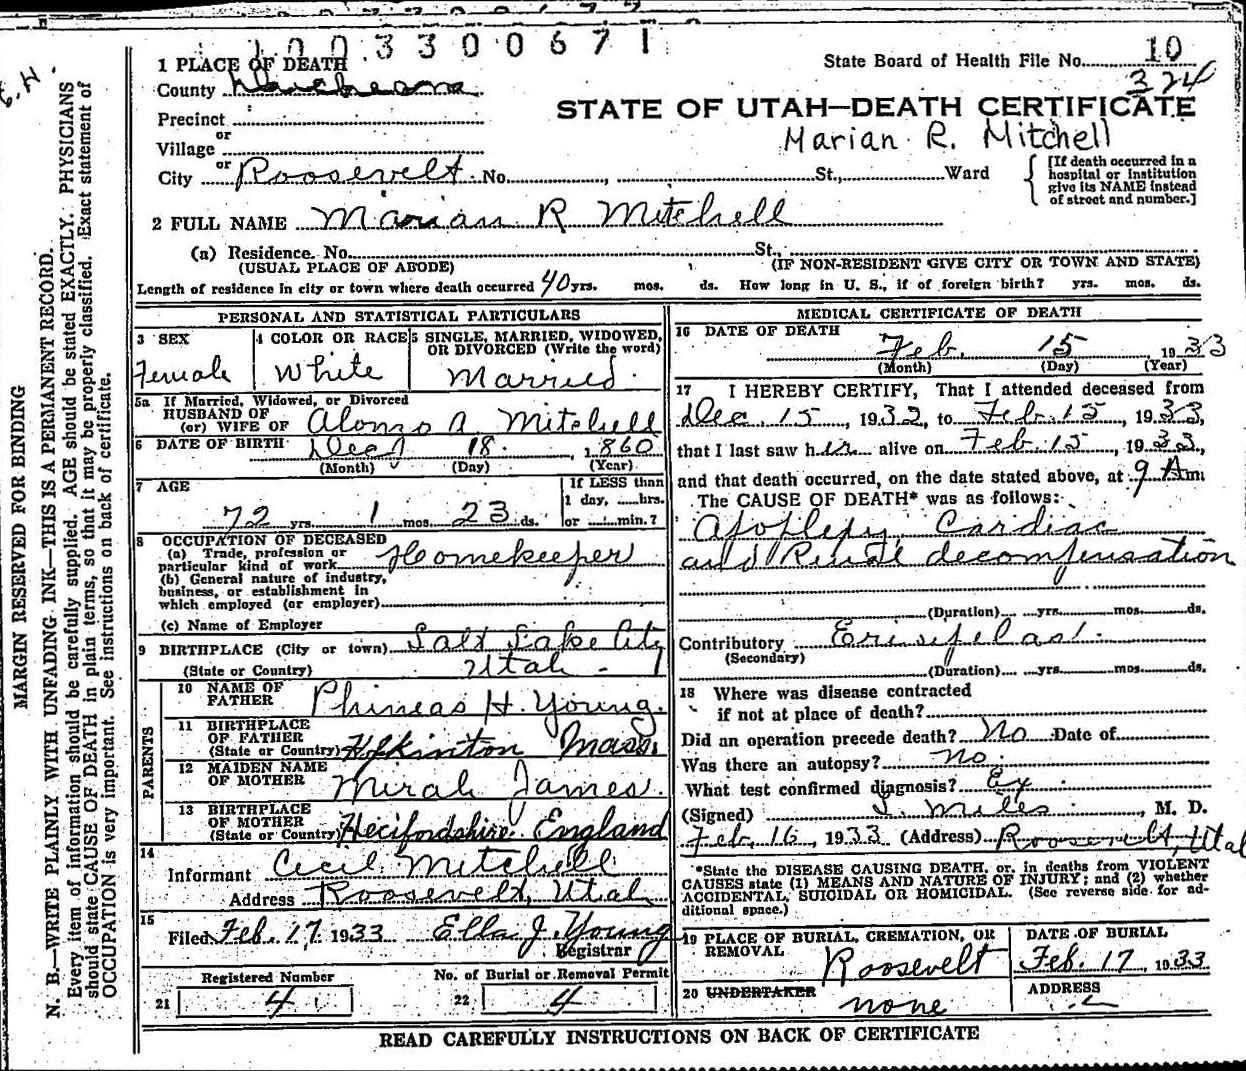 1003300671
1 PLACE OF DEATH
State Board of Health File No. 10
324
County Duchesne
STATE OF UTAH—DEATH CERTIFICATE
Precinct
or
Village
Marian R. Mitchell
or
City Roosevelt No. St., Ward
[If death occurred in a
hospital or institution
give its NAME instead
of street and number.]
2 FULL NAME Marian R Mitchell
(a) Residence. No. St.,
(USUAL PLACE OF ABODE) (IF NON-RESIDENT GIVE CITY OR TOWN AND STATE)
Length of residence in city or town where death occurred 40 yrs. mos. ds. How long in U. S., if of foreign birth? yrs. mos. ds.
PERSONAL AND STATISTICAL PARTICULARS
3 SEX
Female
4 COLOR OR RACE
White
5 SINGLE, MARRIED, WIDOWED,
OR DIVORCED (Write the word)
Married.
5a If Married, Widowed, or Divorced
HUSBAND OF
(or) WIFE OF Alonzo A Mitchell
6 DATE OF BIRTH Dec 18. 1860
(Month) (Day) (Year)
7 AGE
72 yrs. 1 mos. 23 ds.
If LESS than
1 day, hrs.
or min.?
8 OCCUPATION OF DECEASED
(a) Trade, profession or
particular kind of work Homekeeper
(b) General nature of industry,
business, or establishment in
which employed (or employer)
(c) Name of Employer
9 BIRTHPLACE (City or town) Salt Lake City
(State or Country) Utah -
PARENTS
10 NAME OF
FATHER Phineas H. Young.
11 BIRTHPLACE
OF FATHER
(State or Country) Hopkinton Mass.
12 MAIDEN NAME
OF MOTHER Mirah James.
13 BIRTHPLACE
OF MOTHER
(State or Country) England
14
Informant Cecil Mitchell
Address Roosevelt, Utah
15
Filed Feb. 17. 1933 Ella J. Young
Registrar
Registered Number
21 4
No. of Burial or Removal Permit
22 4
MEDICAL CERTIFICATE OF DEATH
16 DATE OF DEATH
Feb. 15 1933
(Month) (Day) (Year)
17 I HEREBY CERTIFY, That I attended deceased from
Dec. 15, 1932, to Feb. 15, 1933,
that I last saw her alive on Feb. 15, 1933,
and that death occurred, on the date stated above, at 9 Am.
The CAUSE OF DEATH* was as follows:
Apoplexy, Cardiac
and Renal decompensation
(Duration) yrs. mos. ds.
Contributory Erisipelas.
(Secondary)
(Duration) yrs. mos. ds.
18 Where was disease contracted
if not at place of death?
Did an operation precede death? No Date of
Was there an autopsy? No.
What test confirmed diagnosis? Ex
(Signed) J. Miles, M. D.
Feb. 16, 1933 (Address) Roosevelt, Utah
*State the DISEASE CAUSING DEATH, or, in deaths from VIOLENT
CAUSES state (1) MEANS AND NATURE OF INJURY; and (2) whether
ACCIDENTAL, SUICIDAL OR HOMICIDAL. (See reverse side for ad-
ditional space.)
19 PLACE OF BURIAL, CREMATION, OR
REMOVAL Roosevelt
DATE OF BURIAL
Feb. 17, 1933
20 UNDERTAKER
none
ADDRESS
READ CAREFULLY INSTRUCTIONS ON BACK OF CERTIFICATE
MARGIN RESERVED FOR BINDING
N. B.—WRITE PLAINLY WITH UNFADING INK—THIS IS A PERMANENT RECORD.
Every item of information should be carefully supplied. AGE should be stated EXACTLY. PHYSICIANS
should state CAUSE OF DEATH in plain terms, so that it may be properly classified. Exact statement of
OCCUPATION is very important. See instructions on back of certificate.